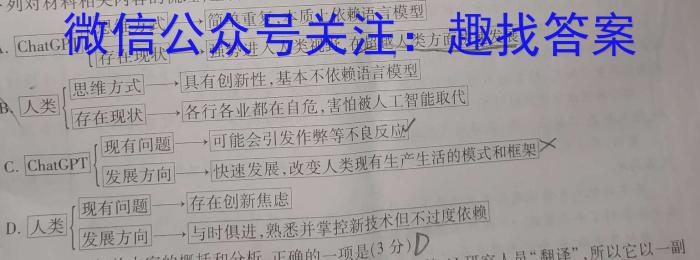 列对材料相关内容的
微信公众号关注：趣找答案
A. ChatGPT
存在现状
B. 人类
思维方式 → 具有创新性，基本不依赖语言模型
存在现状 → 各行各业都在自危，害怕被人工智能取代
C. ChatGPT
现有问题 → 可能会引发作弊等不良反应 ✓
发展方向 → 快速发展，改变人类现有生产生活的模式和框架 ×
D. 人类
现有问题 → 存在创新焦虑
发展方向 → 与时俱进，熟悉并掌控新技术但不过度依赖
的概括和分析，正确的一项是(3分) D
研究人员“翻译”，所以它以一副